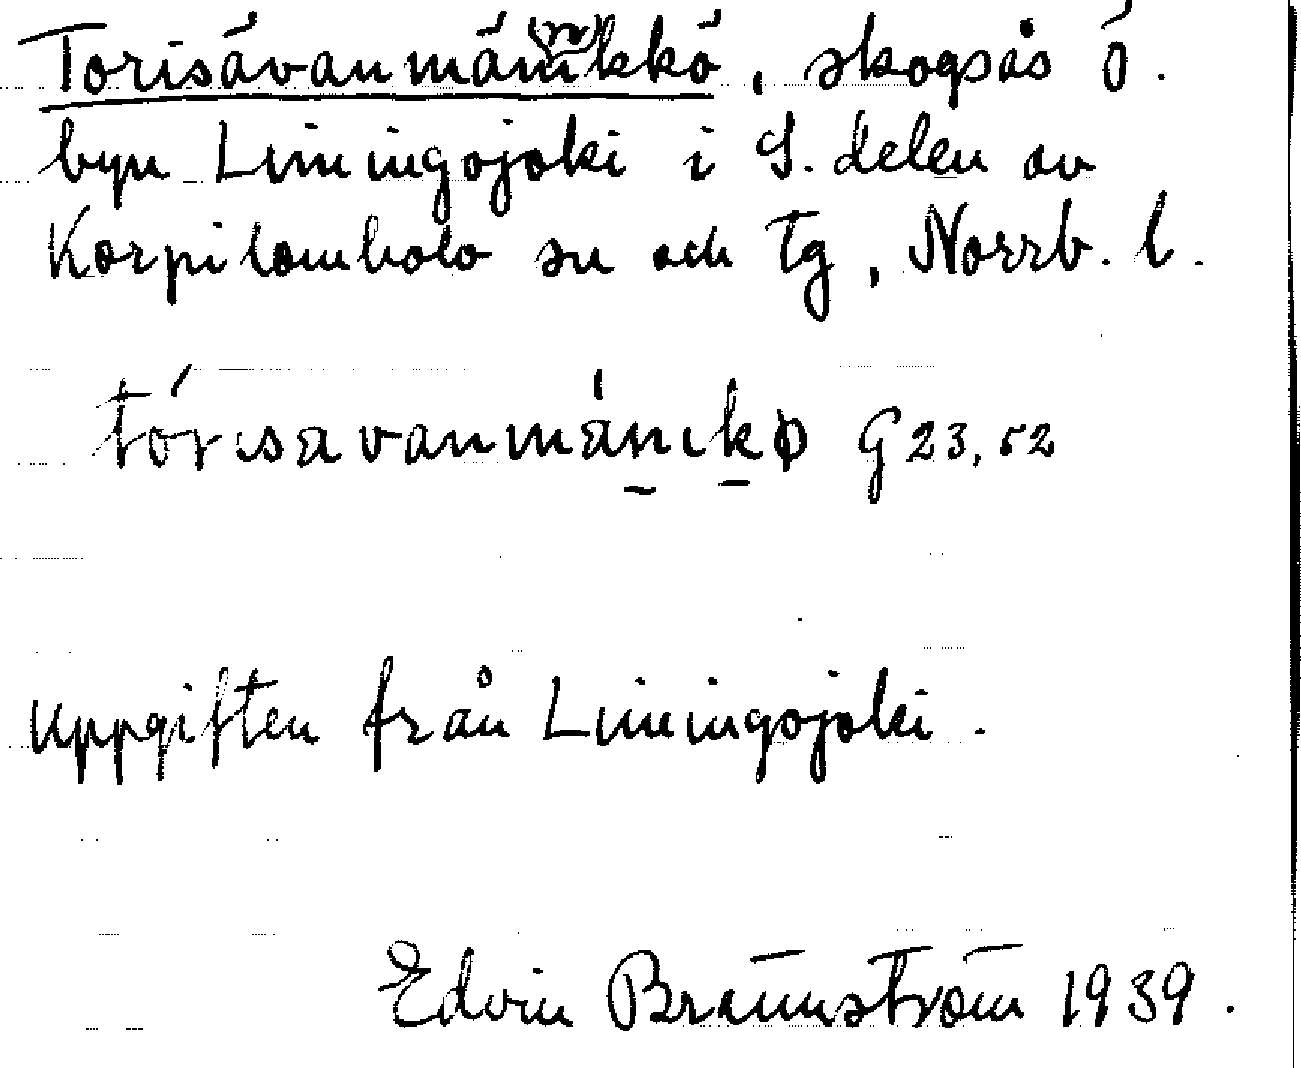 Torisävanmännikkö, skogsås ö.
byn Liviningojoki i S. delen av
Korpilombolo sn och tg, Norrb. l.
tórisavanmänikø G 23,52
Uppgiften från Limingojoki.
Edvin Brännström 1939.